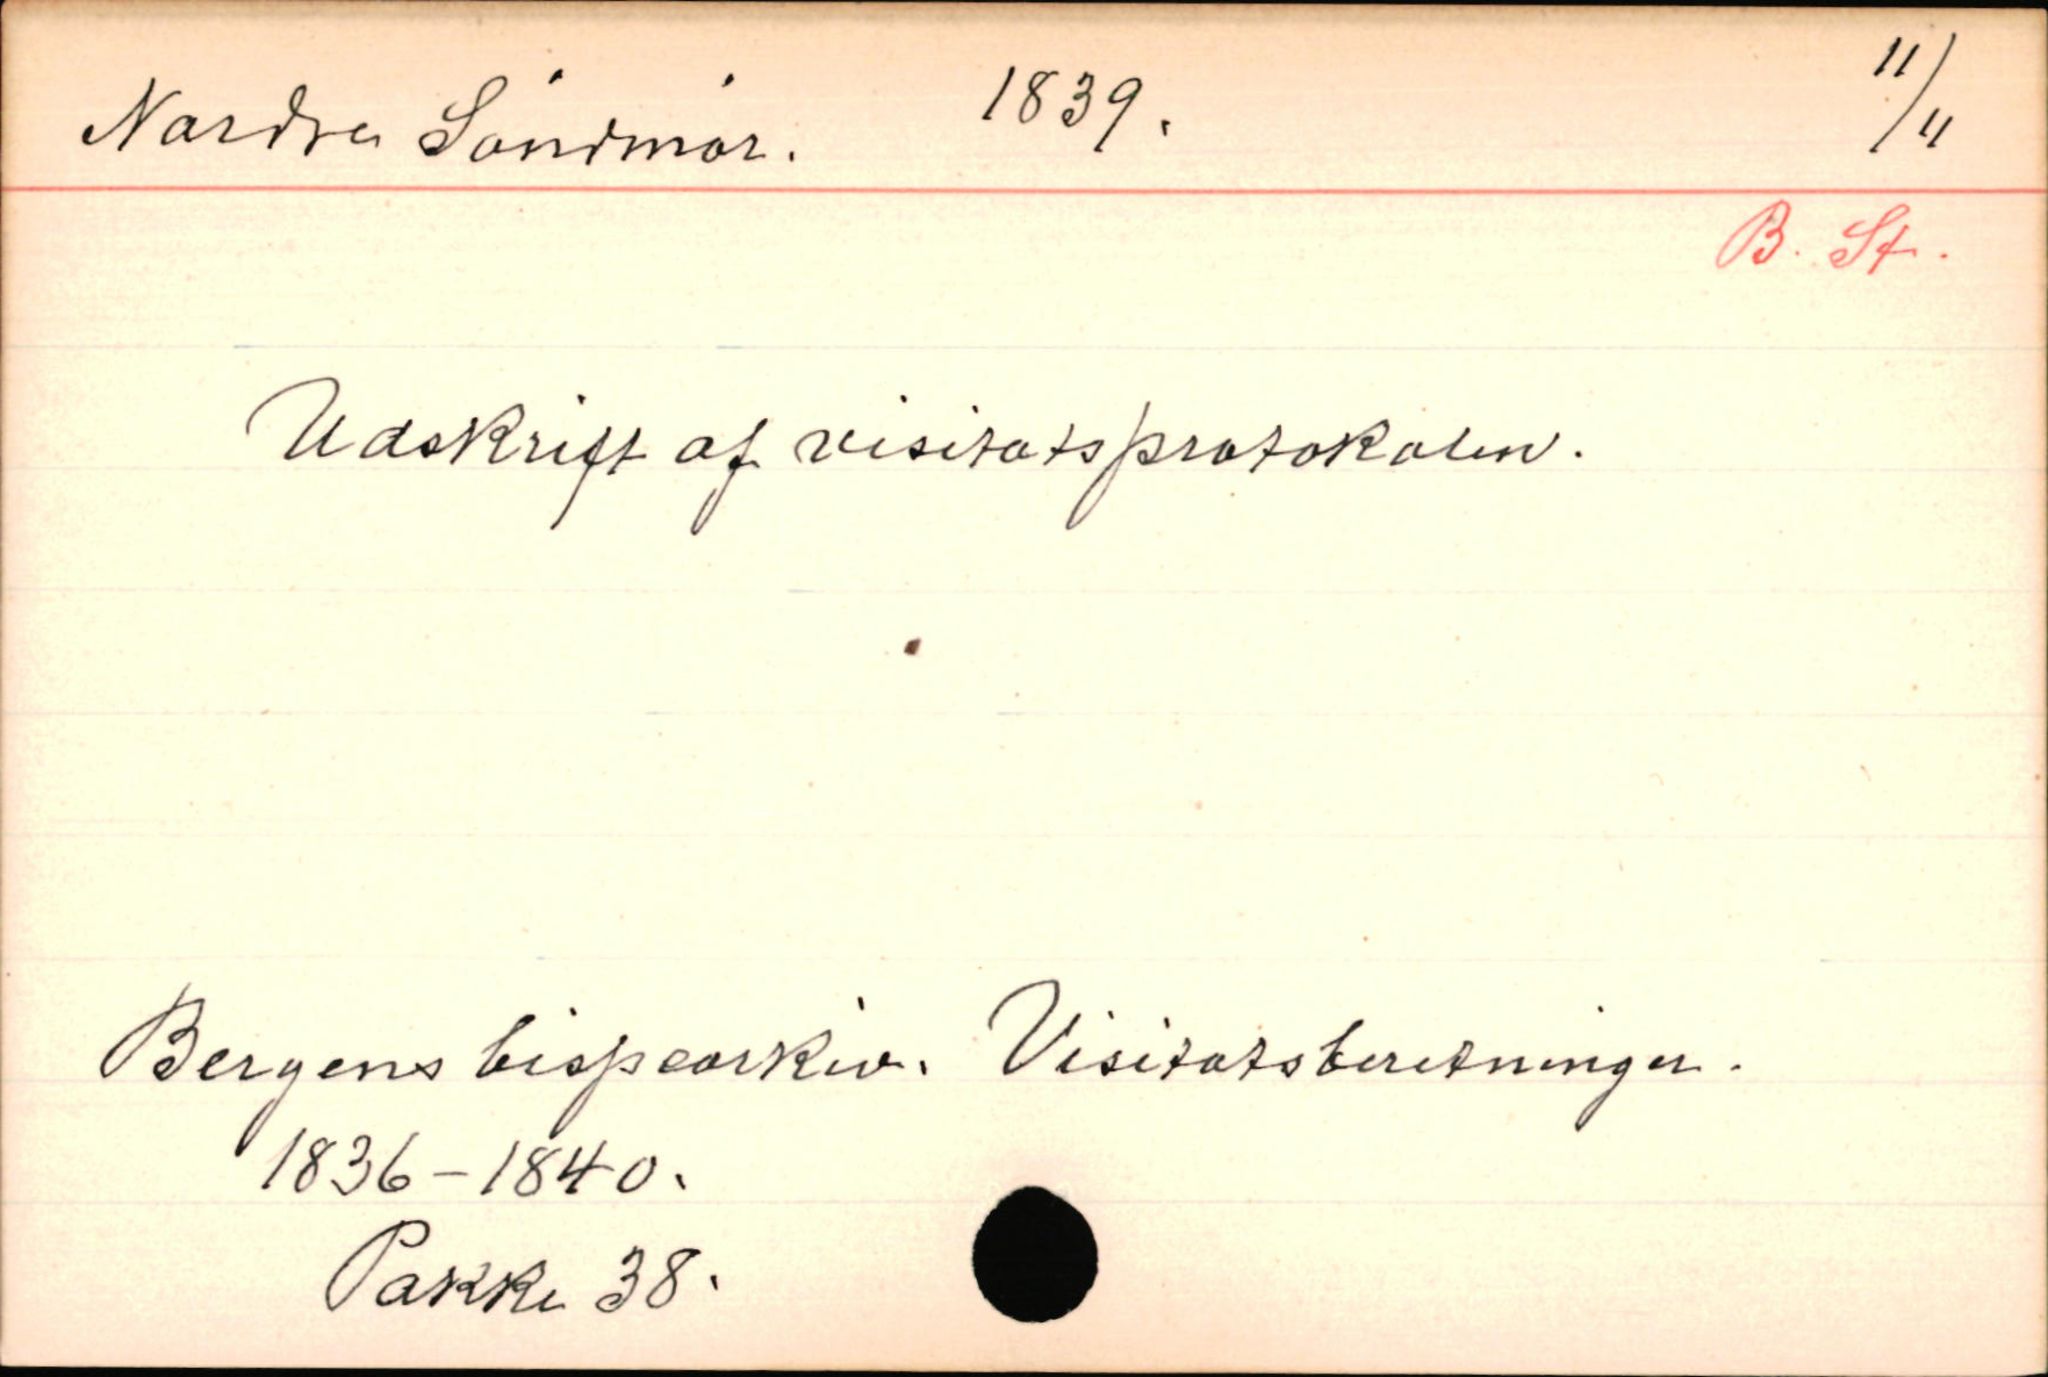 Nordre Söndmör. 1839. 11/11
B. St.
Udskrift af visitatsprotokolen.
Bergens bispearkiv. Visitatsberetninger.
1836-1840.
Pakke 38.